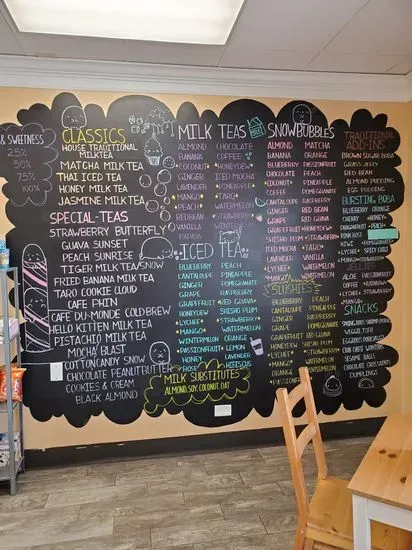 & SWEETNESS
25%
50%
75%
100%
CLASSICS
HOUSE TRADITIONAL
MILKTEA
MATCHA MILK TEA
THAI ICED TEA
HONEY MILK TEA
JASMINE MILK TEA
SPECIAL-TEAS
STRAWBERRY BUTTERFLY
GUAVA SUNSET
PEACH SUNRISE
TIGER MILK TEA/SNOW
FRIED BANANA MILK TEA
TARO COOKIE CLOUD
CAFE PHIN
CAFE DU-MONDE COLD BREW
HELLO KITTEN MILK TEA
PISTACHIO MILK TEA
MOCHA BLAST
COTTON CANDY SNOW
CHOCOLATE PEANUTBUTTER
COOKIES & CREAM
BLACK ALMOND
MILK TEAS
ALMOND CHOCOLATE
BANANA COFFEE
COCONUT HONEYDEW
GINGER ICED MOCHA
LAVENDER PINEAPPLE
MANGO TARO
PEACH WATERMELON
REDBEAN WINTERMELON
VANILLA
PAPAYA
ICED TEA
BLUEBERRY PEACH
CANTALOUPE PINEAPPLE
GINGER POMEGRANATE
GRAPE RASPBERRY
GRAPEFRUIT RED GUAVA
HONEYDEW SHISHO PLUM
LYCHEE STRAWBERRY
MANGO WATERMELON
WINTERMELON ORANGE
PASSIONFRUIT LEMON
HONEY LAVENDER
ROSE HIBISCUS
MILK SUBSTITUTES
ALMOND, SOY, COCONUT, OAT
SNOWBUBBLES
ALMOND MATCHA
BANANA ORANGE
BLUEBERRY PASSIONFRUIT
CHOCOLATE PEACH
COCONUT PINEAPPLE
COFFEE POMEGRANATE
CANTALOUPE RASPBERRY
GINGER RED BEAN
GRAPE RED GUAVA
GRAPEFRUIT
HONEYDEW SHISHO PLUM
HONEY STRAWBERRY
ICED MOCHA TARO
LAVENDER VANILLA
LYCHEE WATERMELON
MANGO WINTERMELON
SLUSHIES
CANTALOUPE PEACH
BLUEBERRY PINEAPPLE
GINGER RASPBERRY
GRAPE POMEGRANATE
GRAPEFRUIT RED GUAVA
HONEYDEW SHISHO PLUM
LYCHEE STRAWBERRY
MANGO WATERMELON
ORANGE WINTERMELON
PASSIONFRUIT
TRADITIONAL
ADD-INS
BROWN SUGAR BOBA
GRASS JELLY
RED BEAN
ALMOND PUDDING
EGG PUDDING
BURSTING BOBA
BLUEBERRY ORANGE
CHERRY HONEY
DRAGONFRUIT PEACH
KIWI
LYCHEE
MANGO
JELLIES
ALOE PASSIONFRUIT
COFFEE
COCONUT
LYCHEE
MANGO
SNACKS
SESAME BALLS
CHOCOLATE CROISSANT
DUMPLINGS